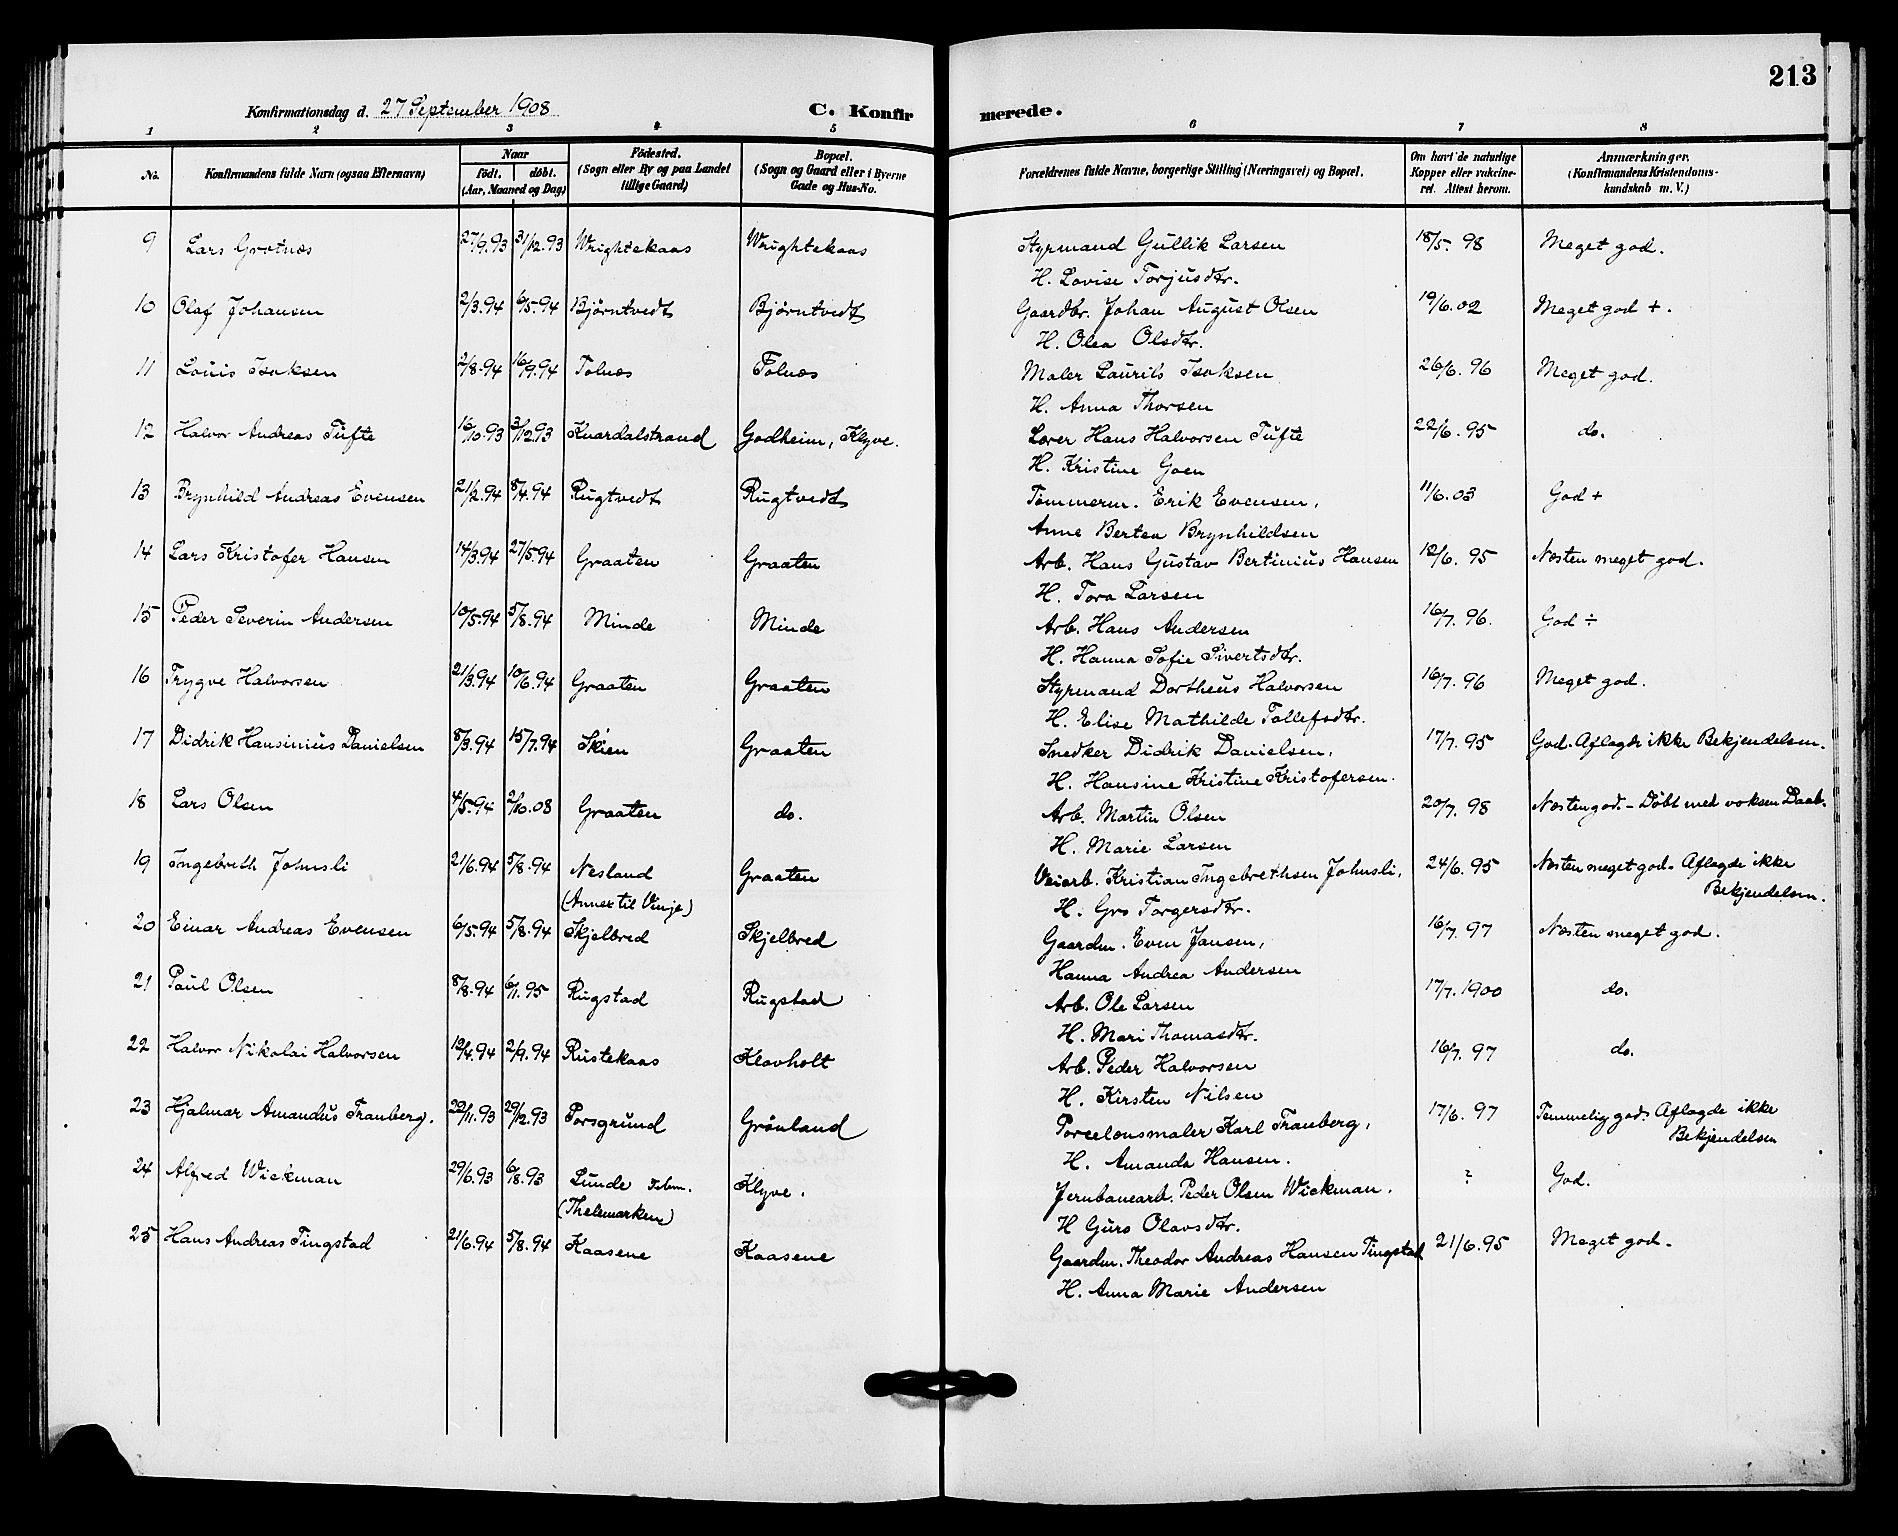 213
Konfirmationsdag d. 27 September 1908 C. Konfirmerede.
1 2 3 4 5 6 7 8
No. Konfirmandens fulde Navn (ogsaa Efternavn) Naar födt. döbt. (Aar, Maaned og Dag) Födested. (Sogn eller By og paa Landet tillige Gaard) Bopæl. (Sogn og Gaard eller i Byerne Gade og Hus-No. Forældrenes fulde Navne, borgerlige Stilling (Næringsvei) og Bopæl. Om havt de naturlige Kopper eller vakcineret. Attest herom. Anmærkninger. (Konfirmandens Kristendomskundskab m. V.)
9 Lars Grotnæs 27/9.93 31/12.93 Wrightekaas Wrightekaas Styrmand Gullik Larsen 18/5. 98 Meget god.
H. Lovise Torjusdtr.
10 Olaf Johansen 2/3.94 6/5.94 Bjørntvedt Bjørntvedt Gaardbr. Johan August Olsen 19/6.02 Meget god +.
H. Olea Olsdtr.
11 Louis Isaksen 2/8.94 16/9.94 Tolnæs Tolnæs Maler Laurits Isaksen 26/6. 96 Meget god.
H. Anna Thorsen
12 Halvor Andreas Tufte 16/10.93 3/12.93 Knardalstrand Godheim, Klyve. Lærer Hans Halvorsen Tufte 22/6. 95 do.
H. Kristine Goen
13 Brynhild Andreas Evensen 21/2.94 8/4.94 Rugtvedt Rugtvedt Tømmerm. Erik Evensen, 11/6.03 God +
Anne Bertea Brynhildsen
14 Lars Kristofer Hansen 14/3.94 27/5.94 Graaten Graaten Arb. Hans Gustav Bertinius Hansen 12/6. 95 Næsten meget god.
H. Tora Larsen
15 Peder Severin Andersen 10/5.94 5/8.94 Minde Minde Arb. Hans Andersen 16/7. 96. God ÷
H. Hanna Sofie Sivertsdtr.
16 Trygve Halvorsen 21/3.94 10/6.94 Graaten Graaten Styrmand Dortheus Halvorsen 16/7. 96 Meget god.
H. Elise Mathilde Tollefsdtr.
17 Didrik Hansinius Danielsen 8/3.94 15/7.94 Skien Graaten Snedker Didrik Danielsen, 17/7. 95 God. Aflagde ikke Bekjendelsen.
H. Hansine Kristine Kristofersen.
18 Lars Olsen 4/5.94 2/10.08 Graaten do. Arb. Martin Olsen 20/7. 98 Næsten god. – Döbt med voksen Daab.
H. Marie Larsen
19 Ingebreth Johnsli 21/6.94 5/8.94 Nesland Graaten Veiarb. Kristian Ingebrethsen Johnsli, 24/6. 95 Næsten meget god. Aflagde ikke
(Annex til Vinje) H. Gro Torgersdtr. Bekjendelsen.
20 Einar Andreas Evensen 6/5.94 5/8.94 Skjelbred Skjelbred Gaardm. Even Jansen, 16/7. 97 Næsten meget god.
Hanna Andrea Andersen
21 Paul Olsen 8/8.94 6/1.95 Rugstad Rugstad Arb. Ole Larsen 17/7. 1900 do.
H. Mari Thomasdtr.
22 Halvor Nikolai Halvorsen 12/4.94 2/9.94 Rustekaas Klovholt Arb. Peder Halvorsen 16/7. 97 do.
H. Kirsten Nilsen
23 Hjalmar Amandus Tranberg. 22/11.93 29/12.93 Porsgrund Grønland Porcelænsmaler Karl Tranberg, 17/6. 97 Temmelig god. Aflagde ikke
H. Amanda Hansen. Bekjendelsen
24 Alfred Wickman 29/6.93 6/8.93 Lunde Telem. Klyve. Jernbanearb. Peder Olsen Wickman. ? God.
(Thelemarken) H Guro Olavsdtr.
25 Hans Andreas Tingstad 21/6.94 5/8.94 Kaasene Kaasene Gaardm. Theodor Andreas Hansen Tingstad 21/6.95 Meget god.
H. Anna Marie Andersen